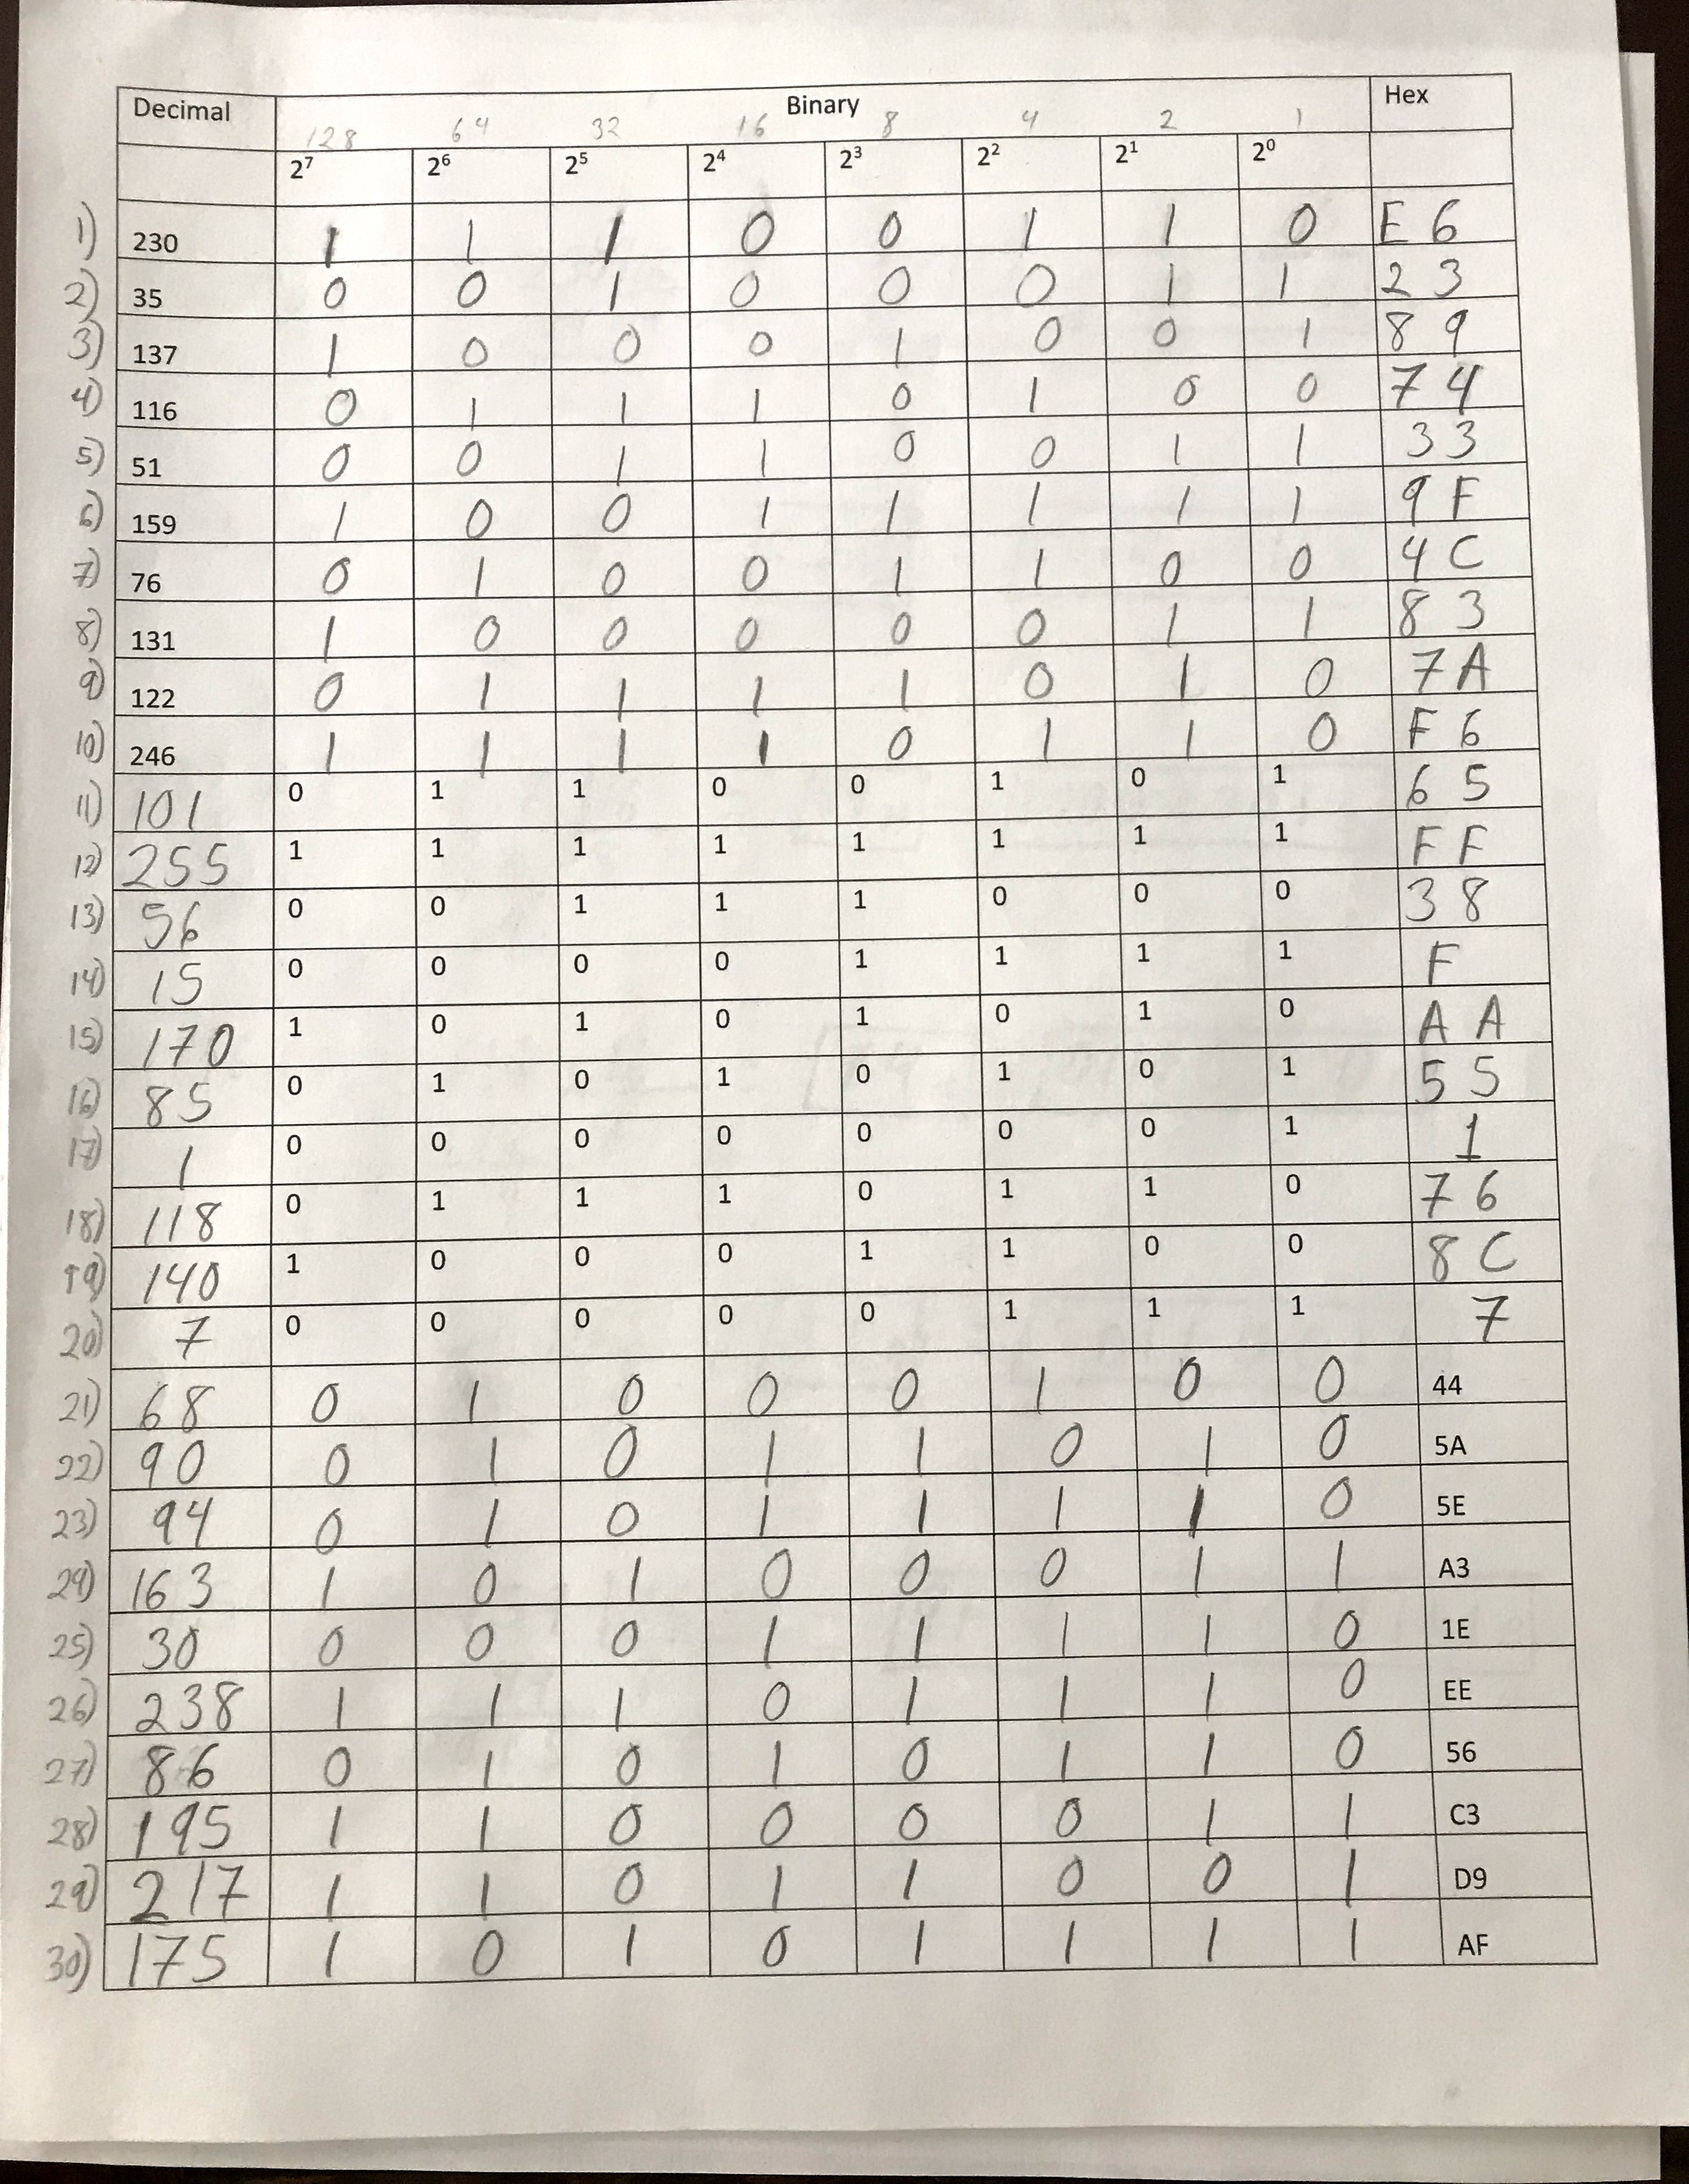 Decimal Binary Hex
128 64 32 16 8 4 2 1
2⁷ 2⁶ 2⁵ 2⁴ 2³ 2² 2¹ 2⁰
1) 230 1 1 1 0 0 1 1 0 E6
2) 35 0 0 1 0 0 0 1 1 23
3) 137 1 0 0 0 1 0 0 1 89
4) 116 0 1 1 1 0 1 0 0 74
5) 51 0 0 1 1 0 0 1 1 33
6) 159 1 0 0 1 1 1 1 1 9F
7) 76 0 1 0 0 1 1 0 0 4C
8) 131 1 0 0 0 0 0 1 1 83
9) 122 0 1 1 1 1 0 1 0 7A
10) 246 1 1 1 1 0 1 1 0 F6
11) 101 0 1 1 0 0 1 0 1 65
12) 255 1 1 1 1 1 1 1 1 FF
13) 56 0 0 1 1 1 0 0 0 38
14) 15 0 0 0 0 1 1 1 1 F
15) 170 1 0 1 0 1 0 1 0 AA
16) 85 0 1 0 1 0 1 0 1 55
17) 1 0 0 0 0 0 0 0 1 1
18) 118 0 1 1 1 0 1 1 0 76
19) 140 1 0 0 0 1 1 0 0 8C
20) 7 0 0 0 0 0 1 1 1 7
21) 68 0 1 0 0 0 1 0 0 44
22) 90 0 1 0 1 1 0 1 0 5A
23) 94 0 1 0 1 1 1 1 0 5E
24) 163 1 0 1 0 0 0 1 1 A3
25) 30 0 0 0 1 1 1 1 0 1E
26) 238 1 1 1 0 1 1 1 0 EE
27) 86 0 1 0 1 0 1 1 0 56
28) 195 1 1 0 0 0 0 1 1 C3
29) 217 1 1 0 1 1 0 0 1 D9
30) 175 1 0 1 0 1 1 1 1 AF